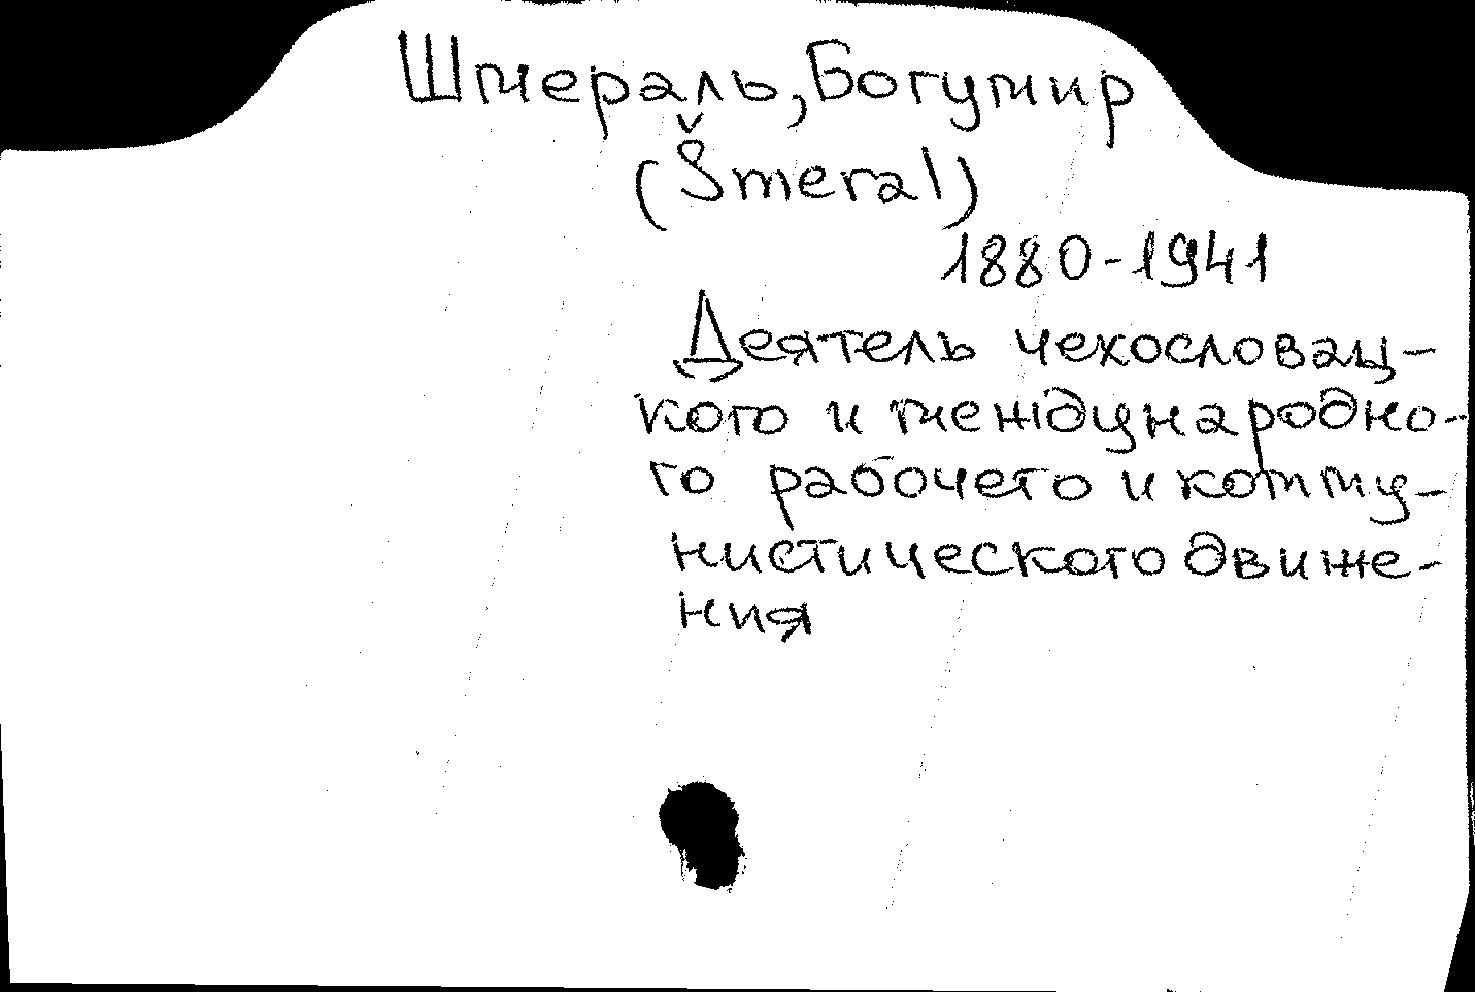 Шмераль, Богумир
(Šmeral)
1880-1941
Деятель чехословац-
кого и международно-
го рабочего и комму-
нистического движе-
ния